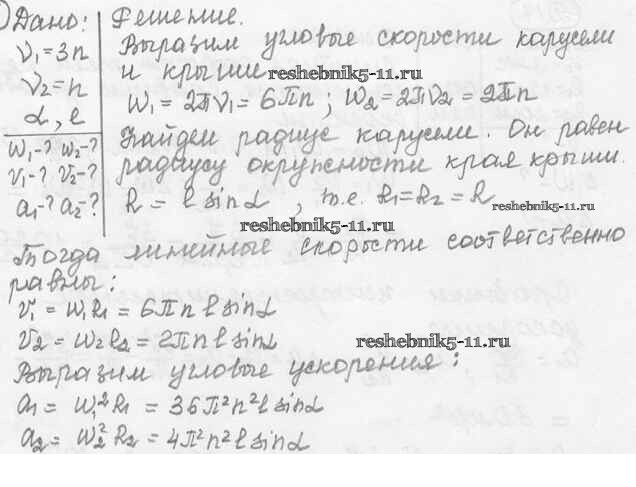 Дано: Решение.
ν₁=3n
ν₂=n
α, ℓ
w₁-? w₂-?
v₁-? v₂-?
a₁-? a₂-?
Выразим угловые скорости карусели
и крыши
reshebnik5-11.ru
w₁ = 2πν₁ = 6πn ; w₂=2πν₂=2πn
Найдем радиус карусели. Он равен
радиусу окружности края крыши.
R = ℓ sinα , т.е. R₁=R₂=R
reshebnik5-11.ru
reshebnik5-11.ru
Тогда линейные скорости соответственно
равны:
v₁ = w₁R₁ = 6πnℓsinα
v₂ = w₂R₂ = 2πnℓsinα
reshebnik5-11.ru
Выразим угловые ускорения:
a₁ = w₁²R₁ = 36π²n²ℓsinα
a₂ = w₂²R₂ = 4π²n²ℓsinα